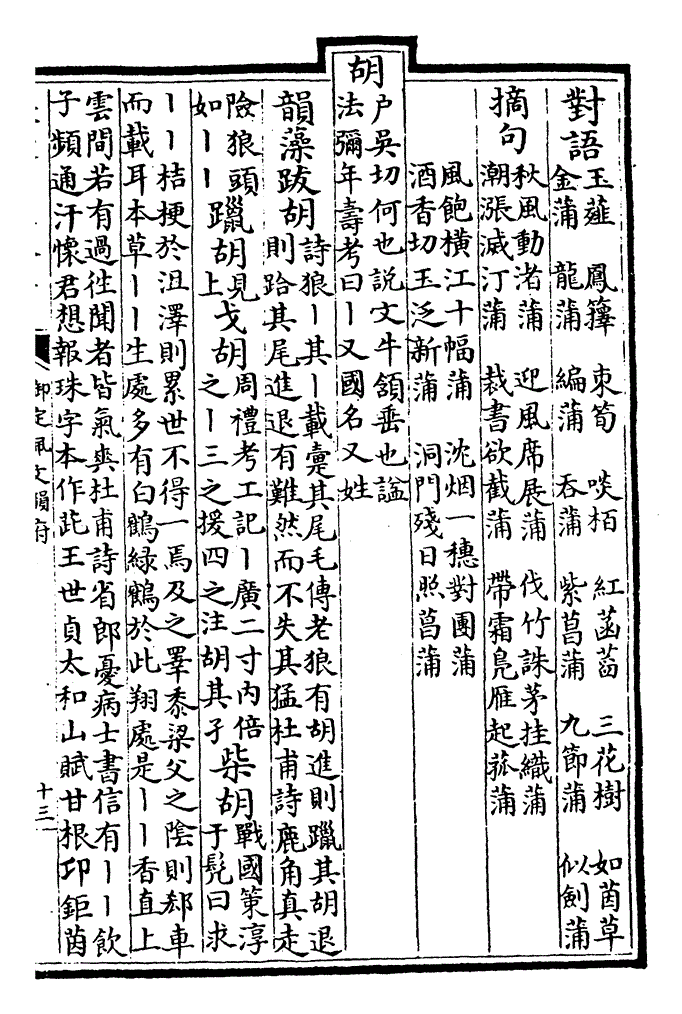 對語 玉薤 鳳籜 束筍 啖栢 紅菡萏 三花樹 如茵草
金蒲 龍蒲 編蒲 吞蒲 紫菖蒲 九節蒲 似劍蒲
摘句 秋風動渚蒲 迎風席展蒲 伐竹誅茅挂織蒲
潮漲滅汀蒲 裁書欲截蒲 帶霜鳧雁起菰蒲
風飽橫江十幅蒲 沈烟一穗對團蒲
酒香切玉泛新蒲 洞門殘日照菖蒲
胡 户吳切何也説文牛頷垂也諡
法彌年壽考曰丨又國名又姓
韻藻 跋胡 詩狼丨其丨載疐其尾毛傳老狼有胡進則躐其胡退
則跲其尾進退有難然而不失其猛杜甫詩鹿角真走
險狼頭如丨丨 躐胡 見上 戈胡 周禮考工記丨廣二寸内倍之丨三之援四之注胡其孑 柴胡 戰國策淳于髡曰求
丨丨桔梗於沮澤則累世不得一焉及之睪黍梁父之陰則郄車
而載耳本草丨丨生處多有白鶴緑鶴於此翔處是丨丨香直上
雲間若有過徃聞者皆氣爽杜甫詩省郎憂病士書信有丨丨飲
子頻通汗懷君想報珠字本作茈王世貞太和山賦甘根卭鉅茵
御定佩文韻府
十三